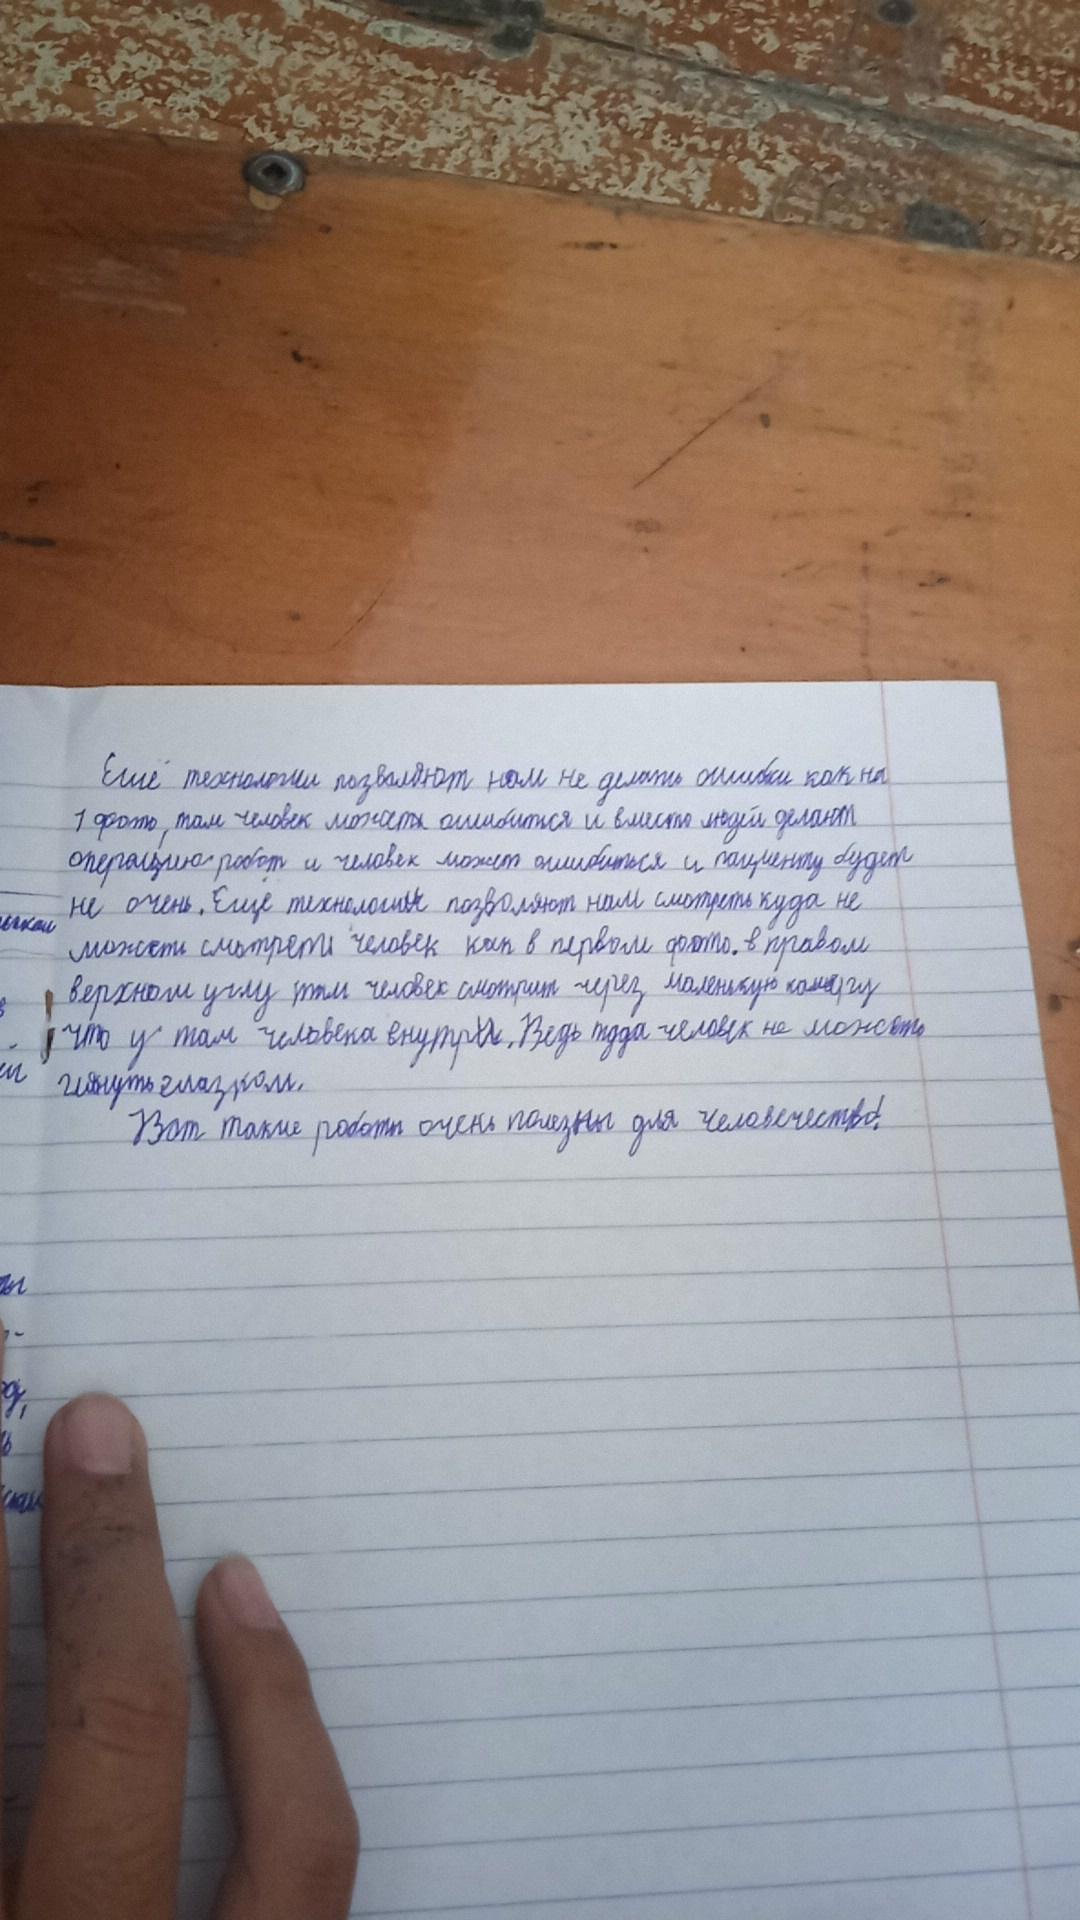 Ещё технологии позволяют нам не делать ошибки как на
1 фото, там человек может ошибиться и вместо людей делают
операцию робот и человек может ошибиться и пациенту будет
не очень. Ещё технологии позволяют нам смотреть куда не
может смотреть человек как в первом фото. в правом
верхном углу там человек смотрит через маленькую камеру
что у там человека внутри. Ведь туда человек не может
глянуть глазком.
Вот такие роботы очень полезны для человечества!